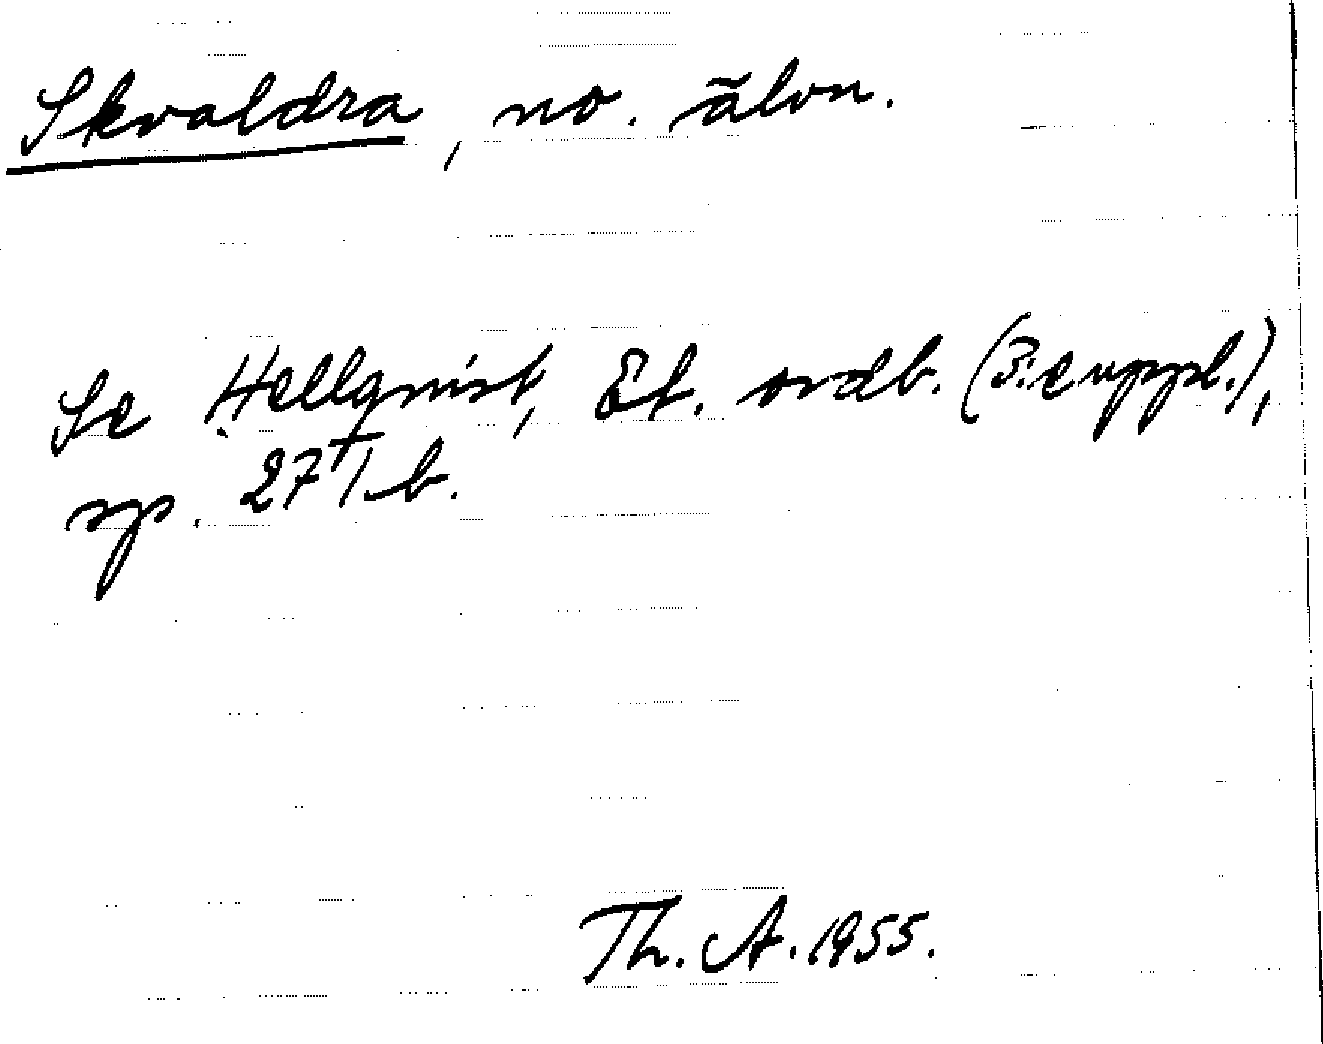 Skvaldra, no. älvn.
Se Hellquist, Et. ordb. (3:e uppl.),
sp. 271 b.
Th. A. 1955.